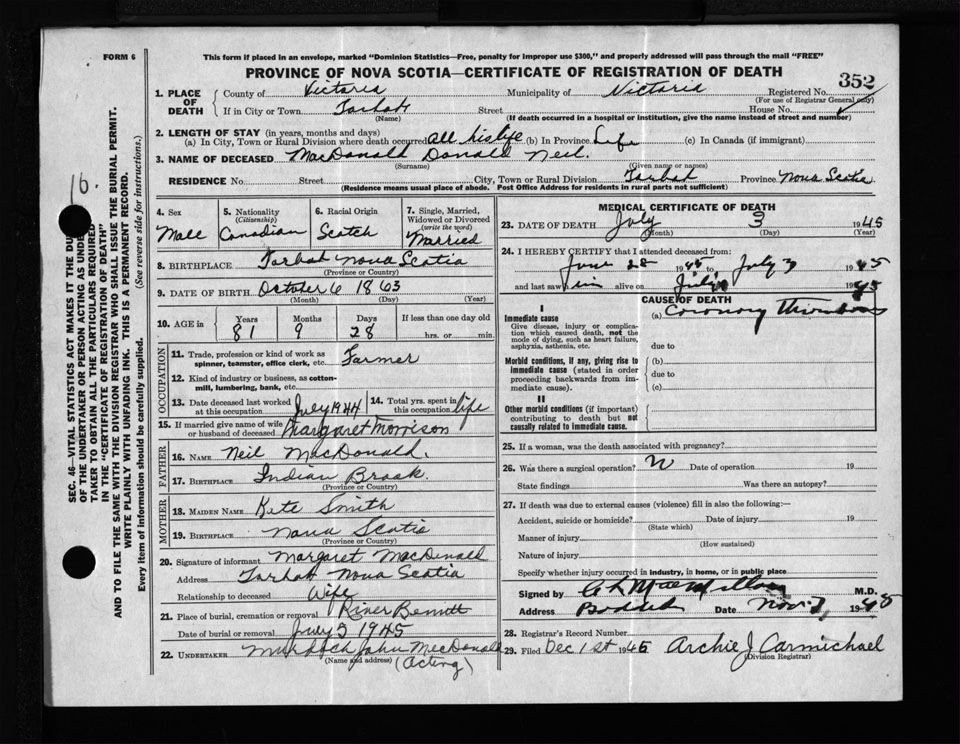 FORM 6
This form if placed in an envelope, marked "Dominion Statistics—Free, penalty for improper use $300," and properly addressed will pass through the mail "FREE"
PROVINCE OF NOVA SCOTIA—CERTIFICATE OF REGISTRATION OF DEATH
352
1. PLACE OF DEATH County of Victoria Municipality of Victoria Registered No.
(For use of Registrar General only)
If in City or Town Tarbot Street House No.
(Name) (If death occurred in a hospital or institution, give the name instead of street and number)
2. LENGTH OF STAY (in years, months and days)
(a) In City, Town or Rural Division where death occurred all his life (b) In Province Life (c) In Canada (if immigrant)
3. NAME OF DECEASED MacDonald Donald Neil.
(Surname) (Given name or names)
RESIDENCE No. Street City, Town or Rural Division Tarbot Province Nova Scotia
(Residence means usual place of abode. Post Office Address for residents in rural parts not sufficient)
16.
SEC. 46—VITAL STATISTICS ACT MAKES IT THE DU
OF THE UNDERTAKER OR PERSON ACTING AS UNDE
TAKER TO OBTAIN ALL THE PARTICULARS REQUIRED
IN THE "CERTIFICATE OF REGISTRATION OF DEATH"
AND TO FILE THE SAME WITH THE DIVISION REGISTRAR WHO SHALL ISSUE THE BURIAL PERMIT.
WRITE PLAINLY WITH UNFADING INK. THIS IS A PERMANENT RECORD.
Every item of information should be carefully supplied. (See reverse side for instructions.)
4. Sex Male
5. Nationality (Citizenship) Canadian
6. Racial Origin Scotch
7. Single, Married, Widowed or Divorced (write the word) Married
8. BIRTHPLACE Tarbot Nova Scotia
(Province or Country)
9. DATE OF BIRTH October 6 1863
(Month) (Day) (Year)
10. AGE in Years 81 Months 9 Days 28 If less than one day old hrs. or min.
OCCUPATION
11. Trade, profession or kind of work as spinner, teamster, office clerk, etc. Farmer
12. Kind of industry or business, as cotton-mill, lumbering, bank, etc.
13. Date deceased last worked at this occupation July 1944 14. Total yrs. spent in this occupation life
15. If married give name of wife or husband of deceased Margaret Morrison
FATHER
16. NAME Neil MacDonald.
17. BIRTHPLACE Indian Brook.
(Province or Country)
MOTHER
18. MAIDEN NAME Kete Smith
19. BIRTHPLACE Nova Scotia
(Province or Country)
20. Signature of informant Margaret MacDonald
Address Tarbot Nova Scotia
Relationship to deceased Wife
21. Place of burial, cremation or removal River Bennett
Date of burial or removal July 5 1945
22. UNDERTAKER Murdoch John MacDonald
(Name and address) (Acting)
MEDICAL CERTIFICATE OF DEATH
23. DATE OF DEATH July 3 1945
(Month) (Day) (Year)
24. I HEREBY CERTIFY that I attended deceased from:
June 28 1945 to July 3 1945
and last saw him alive on July 1945
CAUSE OF DEATH
I
Immediate cause (a) Coronary Thrombosis
Give disease, injury or complication which caused death, not the mode of dying, such as heart failure, asphyxia, asthenia, etc.
due to
Morbid conditions, if any, giving rise to immediate cause (stated in order proceeding backwards from immediate cause).
(b)
due to
(c)
II
Other morbid conditions (if important) contributing to death but not causally related to immediate cause.
25. If a woman, was the death associated with pregnancy?
26. Was there a surgical operation? N Date of operation 19
State findings Was there an autopsy?
27. If death was due to external causes (violence) fill in also the following:—
Accident, suicide or homicide? Date of injury 19
(State which)
Manner of injury
(How sustained)
Nature of injury
Specify whether injury occurred in industry, in home, or in public place
Signed by C L MacMillan M.D.
Address Baddeck Date Nov. 1945
28. Registrar's Record Number
29. Filed Dec 1st 1945 Archie J Carmichael
(Division Registrar)